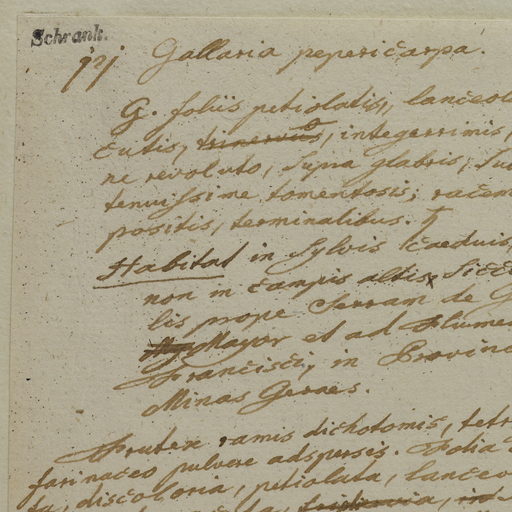 Schrank.
Gallaria pepericarpa.
G. foliis petiolatis, lanceol
cutis, trinerviis, integerrimis,
ne revoluto, supra glabris, su
tenuissime tomentosis; racem
positis, terminalibus.
Habitat in Sylvis caeduis,
non in campis altis, Sicc
lis prope Serram de G
Mayor et ad Flume
Francisci, in Provinc
Minas Geraes.
Frutex ramis dichotomis, tetr
farinaceo pulvere adspersis. Folia
ta, discoloria, petiolata, lanceo